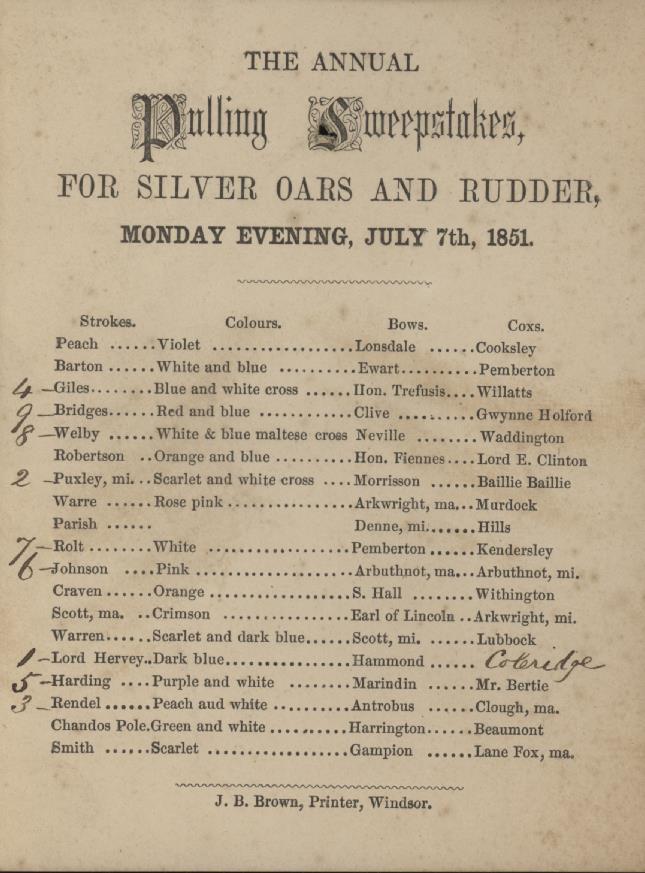 THE ANNUAL
Pulling Sweepstakes,
FOR SILVER OARS AND RUDDER,
MONDAY EVENING, JULY 7th, 1851.
Strokes. Colours. Bows. Coxs.
Peach ......Violet ..................Lonsdale ......Cooksley
Barton ......White and blue ..........Ewart..........Pemberton
4 —Giles........Blue and white cross ......Hon. Trefusis....Willatts
9 —Bridges......Red and blue ............Clive ..........Gwynne Holford
8 —Welby ......White & blue maltese cross Neville ........Waddington
Robertson ..Orange and blue ..........Hon. Fiennes....Lord E. Clinton
2 —Puxley, mi...Scarlet and white cross ....Morrisson ......Baillie Baillie
Warre ......Rose pink ................Arkwright, ma...Murdock
Parish ...... Denne, mi.......Hills
7 —Rolt ........White ..................Pemberton ......Kendersley
6 —Johnson ....Pink ....................Arbuthnot, ma...Arbuthnot, mi.
Craven ......Orange ..................S. Hall ........Withington
Scott, ma. ..Crimson ................Earl of Lincoln ..Arkwright, mi.
Warren......Scarlet and dark blue......Scott, mi. ......Lubbock
1 —Lord Hervey..Dark blue................Hammond ...... Coleridge
5 —Harding ....Purple and white ........Marindin ......Mr. Bertie
3 —Rendel ......Peach aud white ..........Antrobus ......Clough, ma.
Chandos Pole.Green and white ..........Harrington......Beaumont
Smith ......Scarlet ..................Gampion ......Lane Fox, ma.
J. B. Brown, Printer, Windsor.